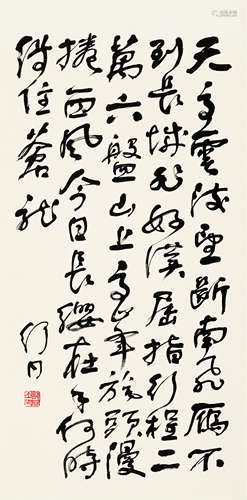 天高雲淡望斷南飛雁不
到長城非好漢屈指行程二
萬六盤山上高峯旄頭漫
捲西風今日長纓在手何時
縛住蒼龍
舒同